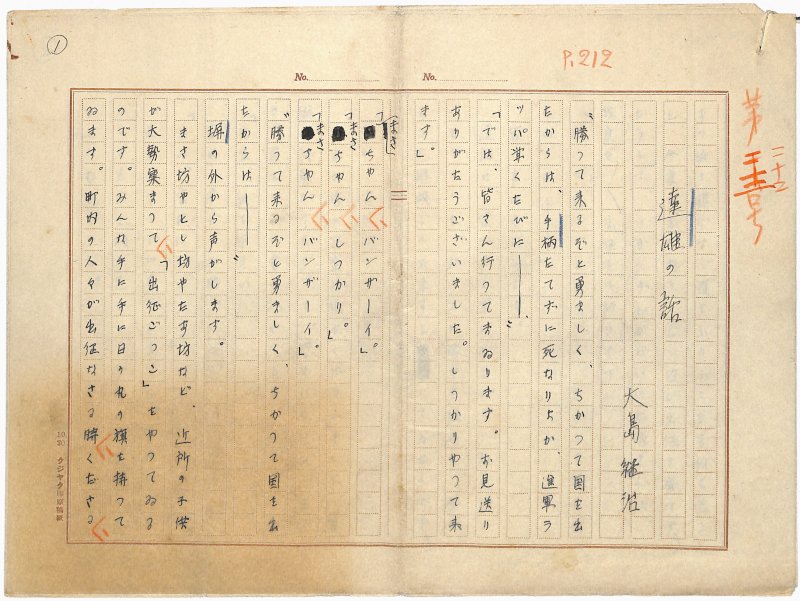 ①
P.212
No.
No.
第二十二号
達雄の話
大島継治
〝勝つて来るぞと勇ましく、ちかつて国を出
たからは、手柄たてずに死なりよか、進軍ラ
ッパ聴くたびに――。〟
「では、皆さん行つてまゐります。お見送り
ありがたうございました。しつかりやつて来
ます。」
「まさちやん、バンザーイ」。
「まさちやん、しつかり」。
「まさちやん バンザーイ」。
〝勝つて来るぞと勇ましく、ちかつて国を出
たからは――〟
塀の外から声がします。
まさ坊やとし坊やたあ坊など、近所の子供
が大勢集まつて、「出征ごつこ」をやつてゐる
のです。みんな手に手に日の丸の旗を持つて
ゐます。町内の人々が出征なさる時くださる
10.20 クジヤク印原稿紙